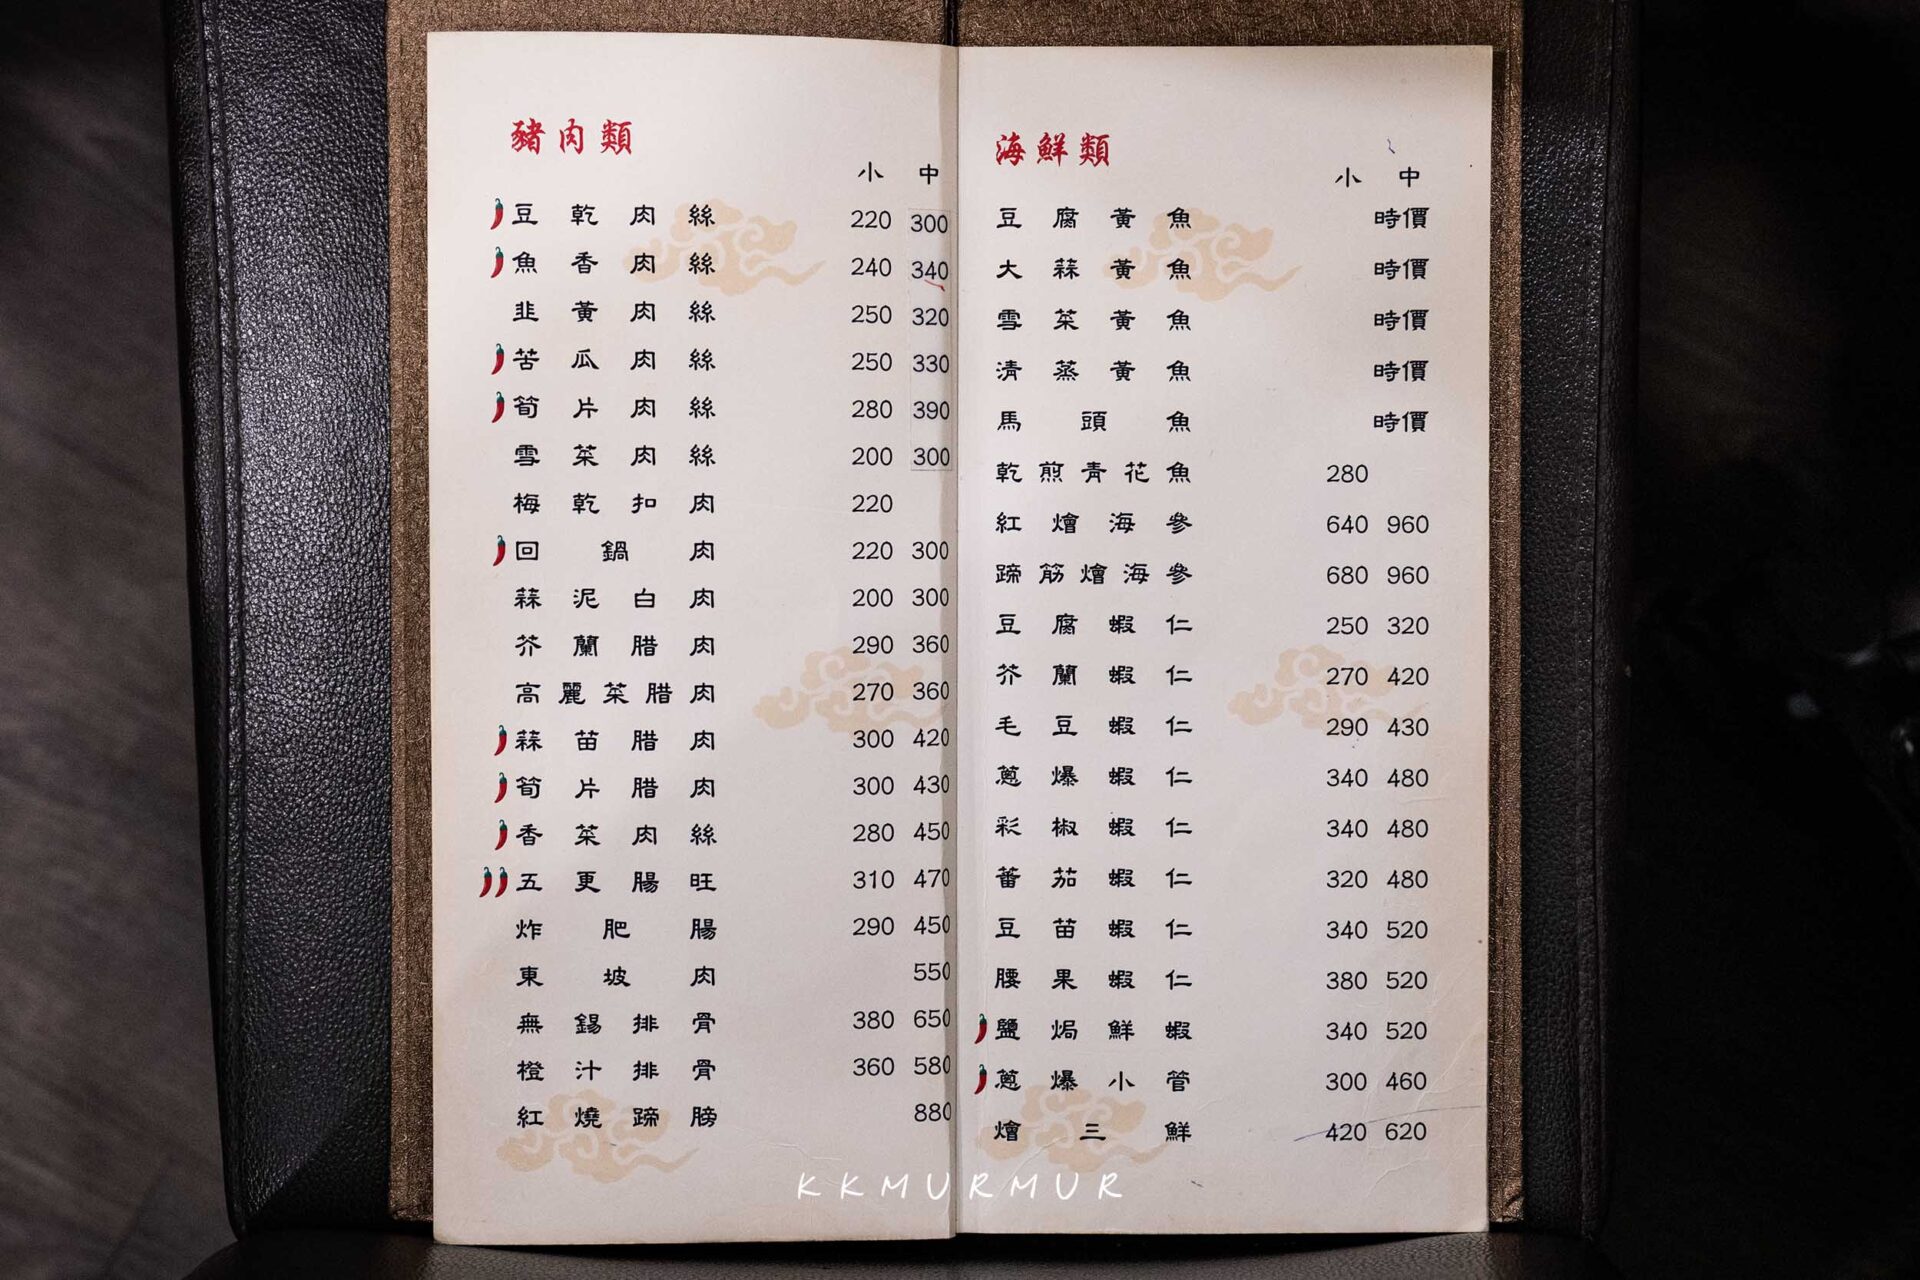 豬肉類
小 中
豆乾肉絲 220 300
魚香肉絲 240 340
韭黃肉絲 250 320
苦瓜肉絲 250 330
筍片肉絲 280 390
雪菜肉絲 200 300
梅乾扣肉 220
回鍋肉 220 300
蒜泥白肉 200 300
芥蘭腊肉 290 360
高麗菜腊肉 270 360
蒜苗腊肉 300 420
筍片腊肉 300 430
香菜肉絲 280 450
五更腸旺 310 470
炸肥腸 290 450
東坡肉 550
無錫排骨 380 650
橙汁排骨 360 580
紅燒蹄膀 880
海鮮類
小 中
豆腐黃魚 時價
大蒜黃魚 時價
雪菜黃魚 時價
清蒸黃魚 時價
馬頭魚 時價
乾煎青花魚 280
紅燴海參 640 960
蹄筋燴海參 680 960
豆腐蝦仁 250 320
芥蘭蝦仁 270 420
毛豆蝦仁 290 430
蔥爆蝦仁 340 480
彩椒蝦仁 340 480
蕃茄蝦仁 320 480
豆苗蝦仁 340 520
腰果蝦仁 380 520
鹽焗鮮蝦 340 520
蔥爆小管 300 460
燴三鮮 420 620
KKMURMUR